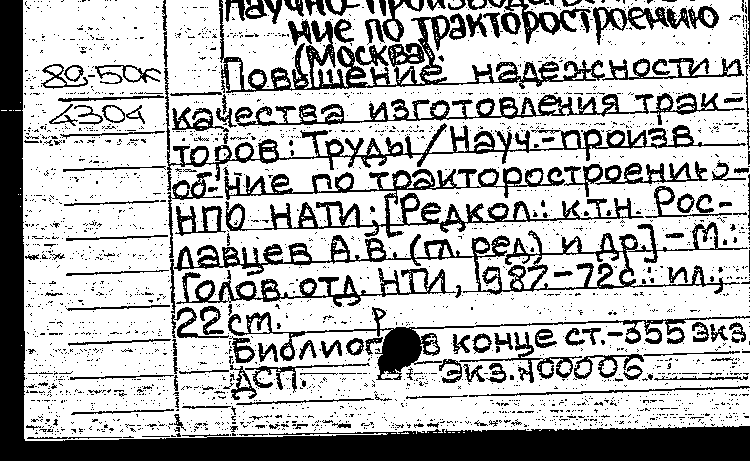 Научно-производ
ние по тракторостроению
(Москва).
89-50к Повышение надежности и
4304 качества изготовления трак-
торов: Труды/Науч.-произв.
об-ние по тракторостроению-
НПО НАТИ; [Редкол.: к.т.н. Рос-
лавцев А.В. (гл. ред.) и др.].-М.:
Голов. отд. НТИ, 1987.-72с.: ил.;
22 см.
Библиогр в конце ст.-355 экз
ДСП. Экз.N00006.